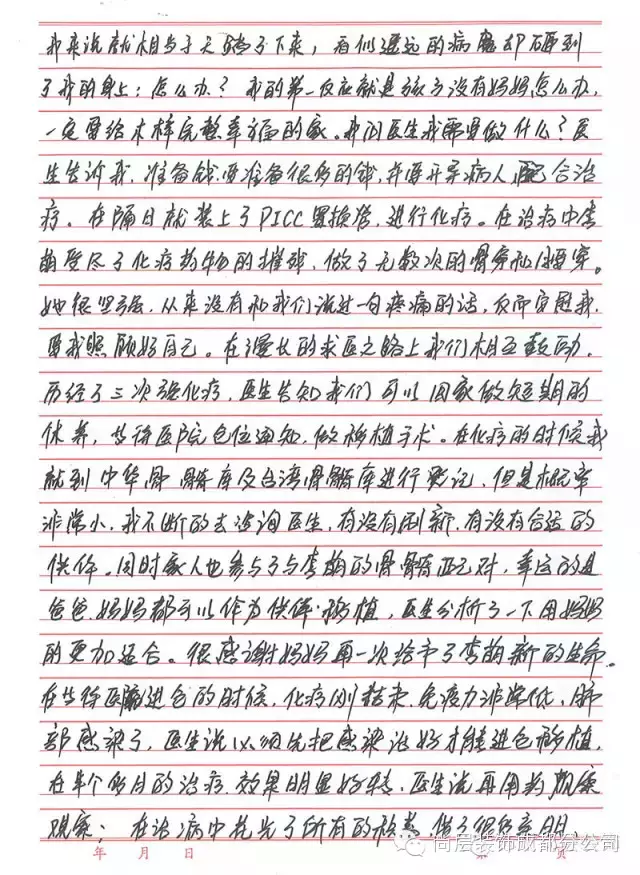 我来说就相当于天踏了下来，看似遥远的病魔却砸到
了我的身上：怎么办？我的第一反应就是孩子没有妈妈怎么办，
一定要给木梓完整幸福的家。我问医生我需要做什么？医
生告诉我，准备钱，要准备很多的钱，并要开导病人，配合治
疗。在隔日就装上了PICC置换管，进行化疗。在治疗中李
萌受尽了化疗药物的摧残，做了无数次的骨穿和腰穿。
她很坚强，从来没有和我们说过一句疼痛的话，反而安慰我，
要我照顾好自己。在漫长的求医之路上我们相互鼓励，
历经了三次强化疗，医生告知我们可以回家做短期的
休养，等待医院仓位通知，做移植手术。在化疗的时候我
就到中华骨髓库及台湾骨髓库进行登记，但是概率
非常小，我不断的去咨询医生，有没有刷新，有没有合适的
供体。同时家人也参与了与李萌的骨髓配对，幸运的是
爸爸、妈妈都可以作为供体移植，医生分析了一下用妈妈
的更加适合。很感谢妈妈再一次给予了李萌新的生命。
在等待医院进仓的时候，化疗刚结束，免疫力非常低，肺
部感染了，医生说必须先把感染治好才能进仓移植，
在半个多月的治疗，效果明显好转，医生说再用药观察
观察；在治病中花光了所有的积蓄，借了很多
年 月 日 第 页
尚层装饰成都分公司